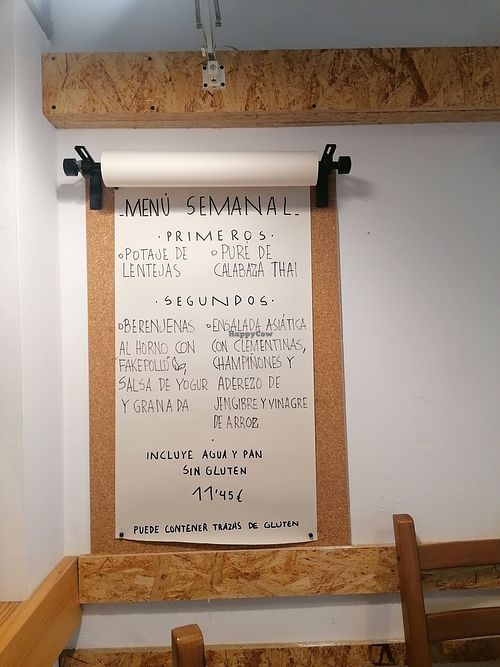 -MENÚ SEMANAL-
·PRIMEROS·
○POTAJE DE LENTEJAS
○ PURÉ DE CALABAZA THAI
·SEGUNDOS·
○BERENJENAS
AL HORNO CON
FAKEPOLLO
SALSA DE YOGUR
Y GRANADA
○ENSALADA ASIÁTICA
CON CLEMENTINAS,
CHAMPIÑONES Y
ADEREZO DE
JENGIBRE Y VINAGRE
DE ARROZ.
HappyCow
INCLUYE AGUA Y PAN
SIN GLUTEN
11'45€
PUEDE CONTENER TRAZAS DE GLUTEN